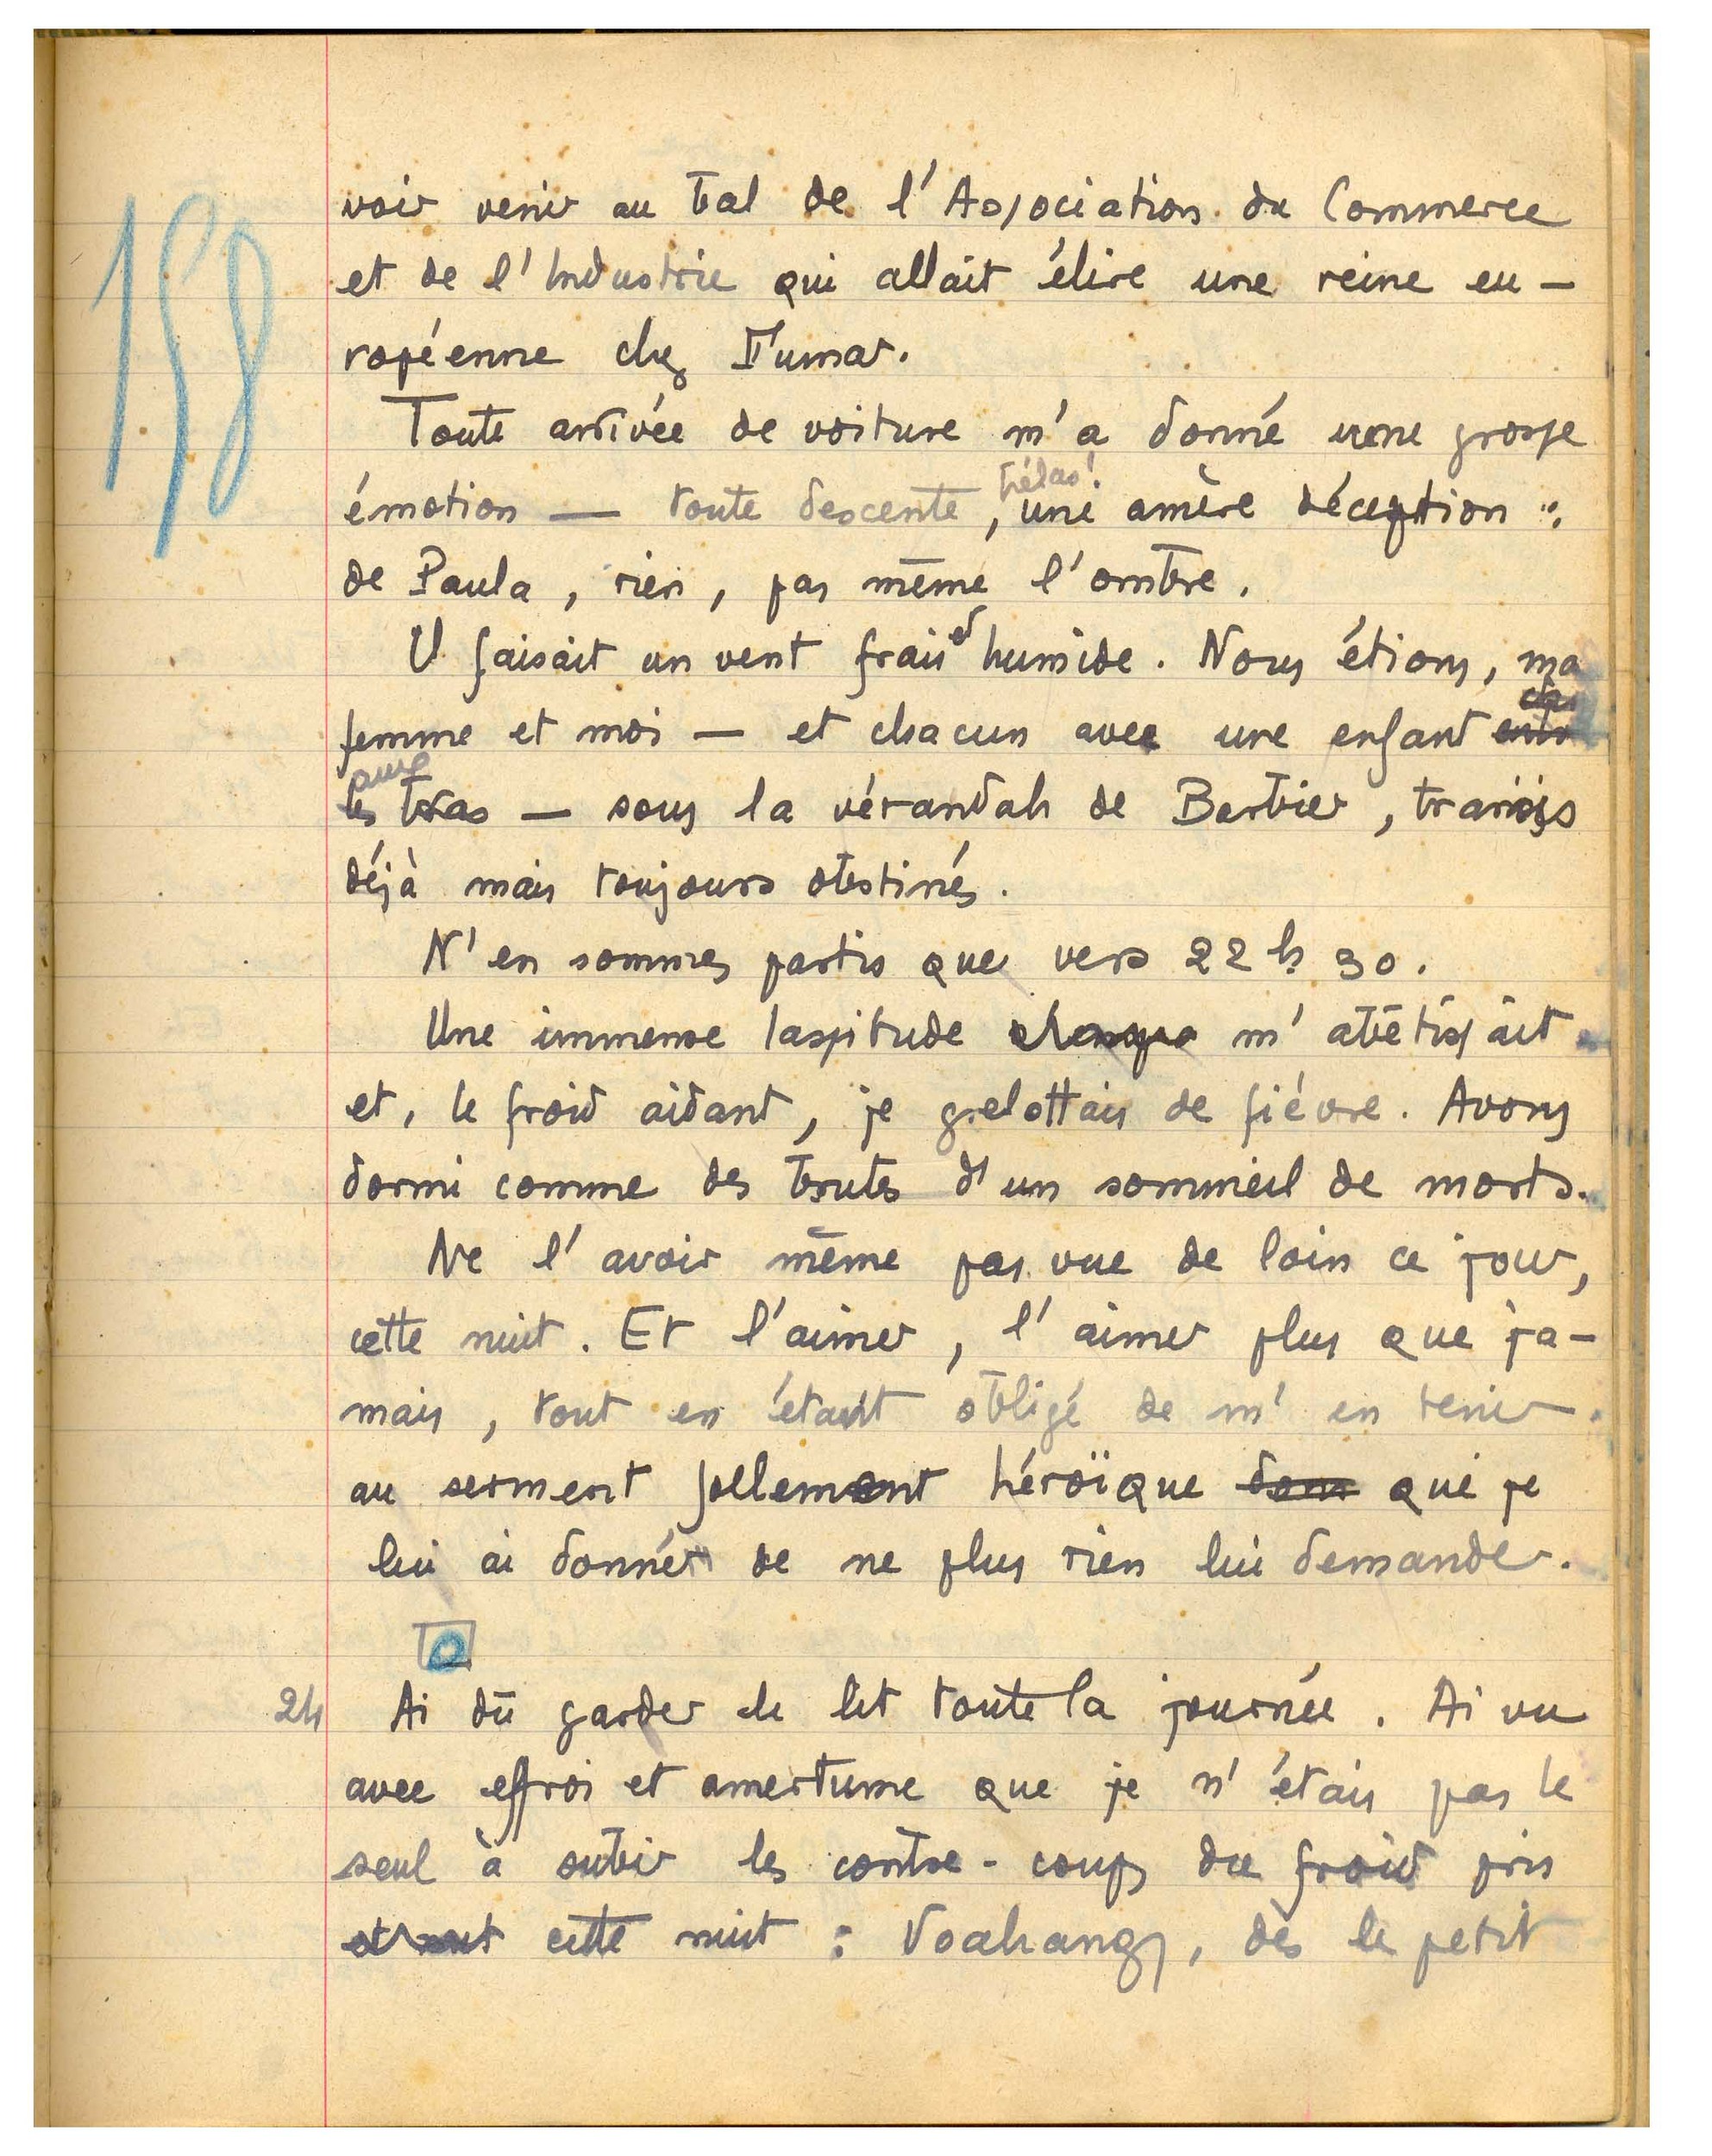 158
voir venir au bal de l'Association du Commerce
et de l'Industrie qui allait élire une reine eu-
ropéenne chez Fumar.
Toute arrivée de voiture m'a donné une grosse
hélas!
émotion — toute descente, une amère déception :
de Paula, rien, pas même l'ombre.
Il faisait un vent frais et humide. Nous étions, ma
femme et moi — et chacun avec une enfant
aux
bras — sous la vérandah de Barbier, transis
déjà mais toujours obstinés.
N'en sommes partis que vers 22 h 30.
Une immense lassitude m'abêtissait
et, le froid aidant, je grelottais de fièvre. Avons
dormi comme des brutes d'un sommeil de morts.
Ne l'avoir même pas vue de loin ce jour,
cette nuit. Et l'aimer, l'aimer plus que ja-
mais, tout en étant obligé de m'en tenir
au serment follement héroïque que je
lui ai donné de ne plus rien lui demander.
24 Ai dû garder le lit toute la journée. Ai vu
avec effroi et amertume que je n'étais pas le
seul à subir les contre-coups du froid pris
cette nuit : Voahangy, dès le petit